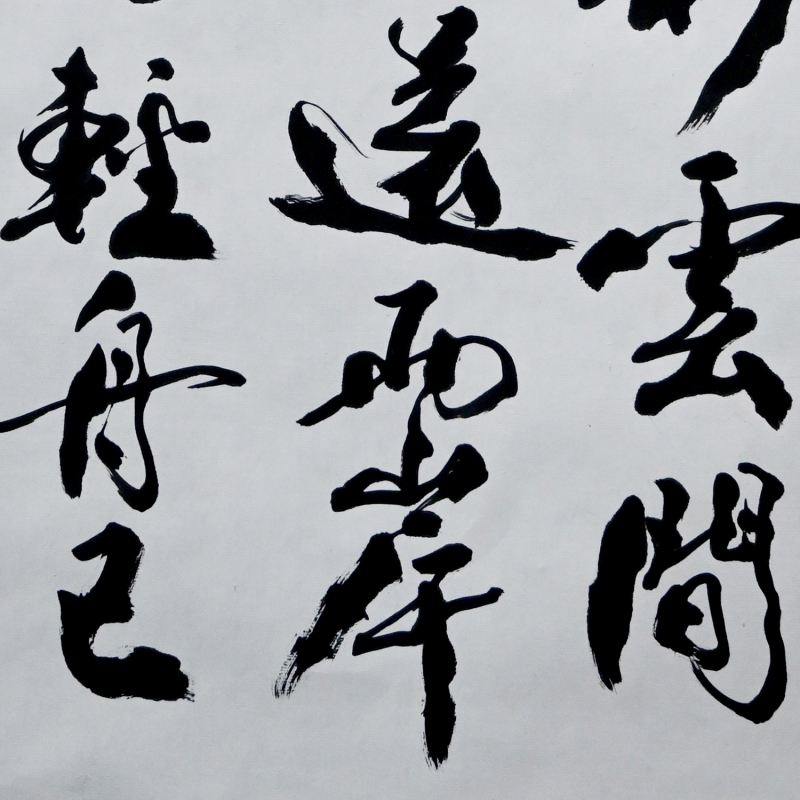 雲間
還兩岸
輕舟已